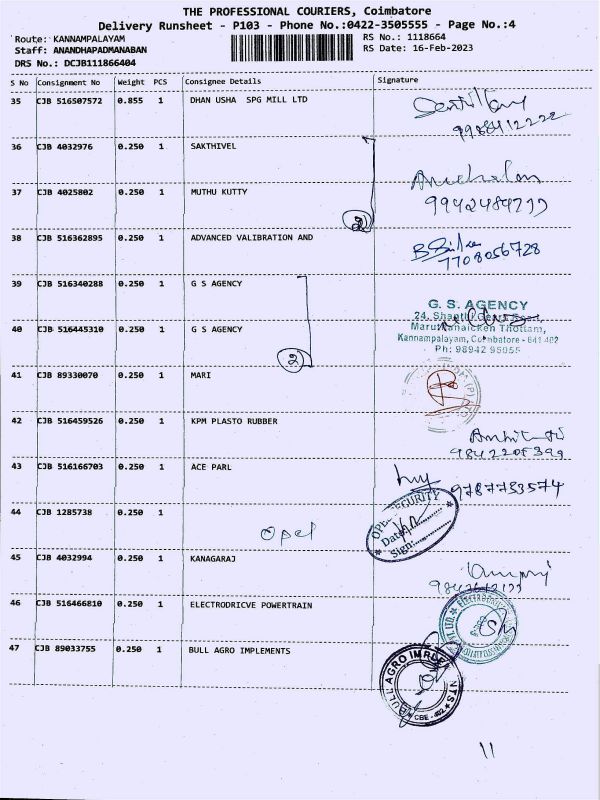 THE PROFESSIONAL COURIERS, Coimbatore
Delivery Runsheet - P103 - Phone No.:0422-3505555 - Page No.:4
Route: KANNAMPALAYAM
Staff: ANANDHAPADMANABAN
DRS No.: DCJB111866404
RS No.: 1118664
RS Date: 16-Feb-2023
S No Consignment No Weight PCS Consignee Details Signature
35 CJB 516507572 0.855 1 DHAN USHA SPG MILL LTD
36 CJB 4032976 0.250 1 SAKTHIVEL
37 CJB 4025802 0.250 1 MUTHU KUTTY
38 CJB 516362895 0.250 1 ADVANCED VALIBRATION AND
7708056728
39 CJB 516340288 0.250 1 G S AGENCY
G. S. AGENCY
24, Shanthi
40 CJB 516445310 0.250 1 G S AGENCY
Maruthanaicken Thottam,
Kannampalayam, Coimbatore - 641 402
Ph: 98942 95055
41 CJB 89330070 0.250 1 MARI
42 CJB 516459526 0.250 1 KPM PLASTO RUBBER
43 CJB 516166703 0.250 1 ACE PARL
9787733574
44 CJB 1285738 0.250 1
Opel
SECURITY
Date
Sign:
45 CJB 4032994 0.250 1 KANAGARAJ
46 CJB 516466810 0.250 1 ELECTRODRICVE POWERTRAIN
47 CJB 89033755 0.250 1 BULL AGRO IMPLEMENTS
BULL AGRO IMPLEMENTS
CBE - 402
11